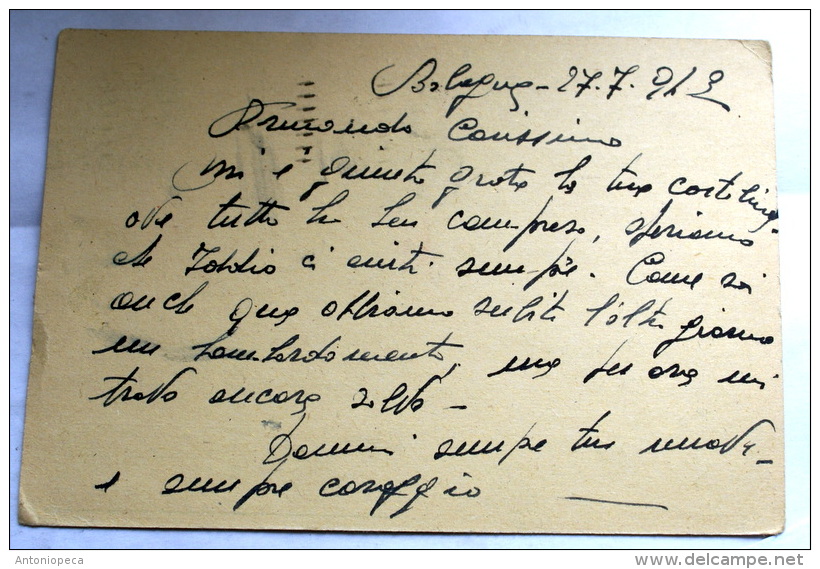 Bologna - 27.7.943
Armando Carissimo
mi è giunta grata la tua cartolina
ove tutto ho ben compreso, speriamo
che Iddio ci aiuti sempre. Come sai
anche qua abbiamo subito l'altro giorno
un bombardamento, ma per ora mi
trovo ancora salvo -
Dammi sempre tue nuove -
e sempre coraggio
Antoniopeca
www.delcampe.net